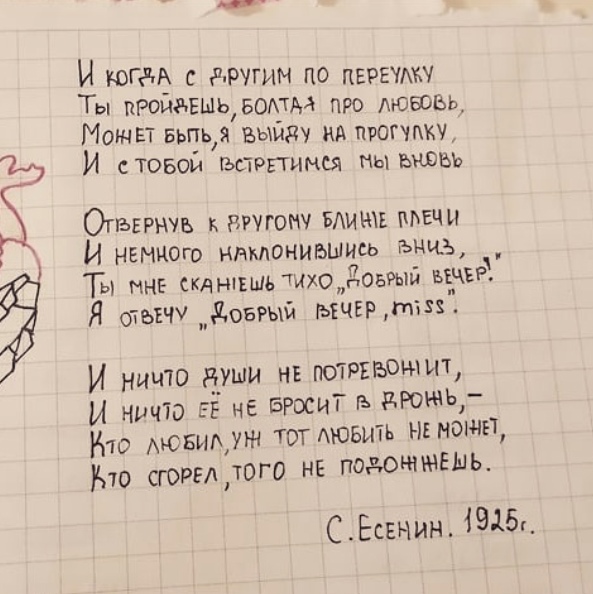 И КОГДА С ДРУГИМ ПО ПЕРЕУЛКУ
ТЫ ПРОЙДЕШЬ, БОЛТАЯ ПРО ЛЮБОВЬ,
МОЖЕТ БЫТЬ, Я ВЫЙДУ НА ПРОГУЛКУ,
И С ТОБОЙ ВСТРЕТИМСЯ МЫ ВНОВЬ
ОТВЕРНУВ К ДРУГОМУ БЛИЖЕ ПЛЕЧИ
И НЕМНОГО НАКЛОНИВШИСЬ ВНИЗ,
ТЫ МНЕ СКАЖЕШЬ ТИХО „ДОБРЫЙ ВЕЧЕР!"
Я ОТВЕЧУ „ДОБРЫЙ ВЕЧЕР, miss".
И НИЧТО ДУШИ НЕ ПОТРЕВОЖИТ,
И НИЧТО ЕЁ НЕ БРОСИТ В ДРОЖЬ, –
КТО ЛЮБИЛ, УЖ ТОТ ЛЮБИТЬ НЕ МОЖЕТ,
КТО СГОРЕЛ, ТОГО НЕ ПОДОЖЖЕШЬ.
С. ЕСЕНИН. 1925г.